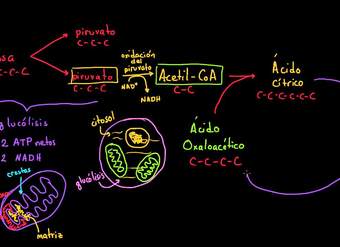 piruvato
C-C-C
osa
C-C-C
oxidación
del
piruvato
piruvato
C-C-C
NAD⁺
NADH
Acetil-CoA
C-C
Ácido
cítrico
C-C-C-C-C-C
glucólisis
2 ATP netos
2 NADH
crestas
matriz
citosol
glucólisis
Ácido
Oxaloacético
C-C-C-C